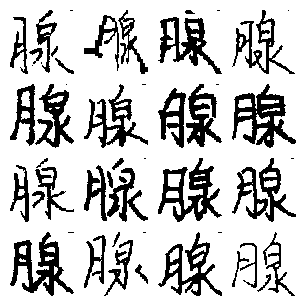 腺腺腺腺
腺腺腺腺
腺腺腺腺
腺腺腺腺